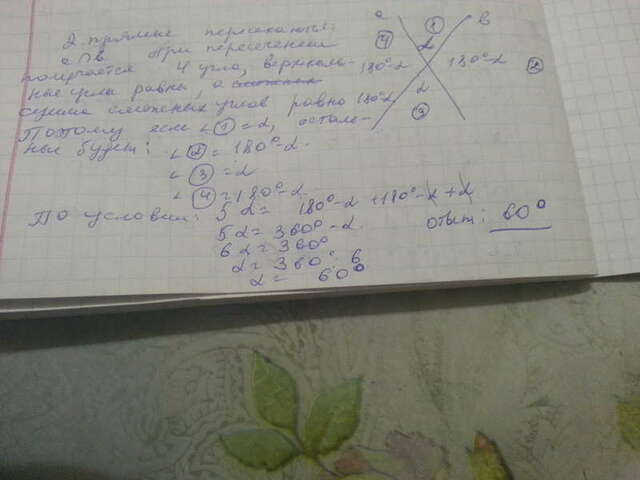 2 прямые пересекаются:
a∩b. При пересечении
получается 4 угла, вертикаль-
ные углы равны, а смежных
сумма смежных углов равно 180°
Поэтому если ∠① = α, осталь-
ные будут:
∠② = 180° - α.
∠③ = α
∠④ = 180° - α.
По условии: 5α = 180° - α + 180° - α + α
5α = 360° - α.
6α = 360°
α = 360° : 6
α = 60°
Ответ: 60°
a
b
①
④
α
180° - α
180° - α
②
α
③